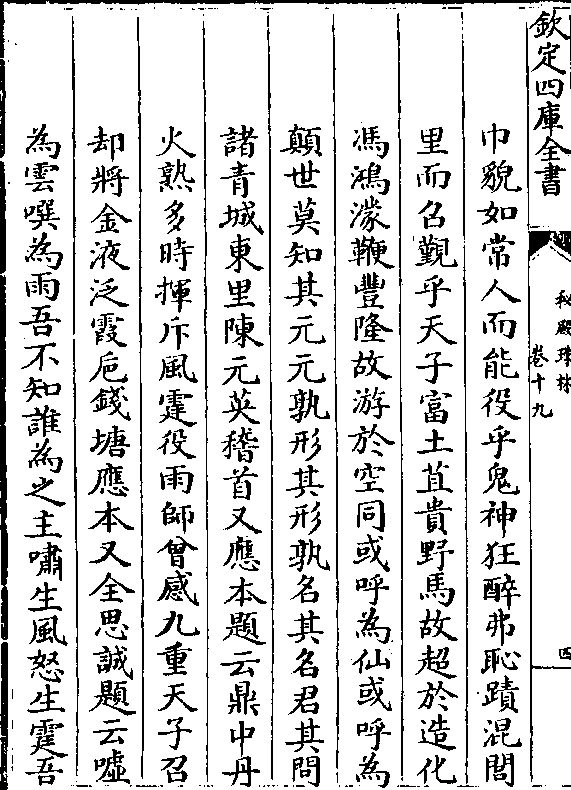 欽定四庫全書
秘殿珠林
卷十九
四
巾貌如常人而能役乎鬼神狂醉弗恥蹟混閭
里而召覲乎天子富土苴貴野馬故超於造化
馮鴻濛鞭豐隆故游於空同或呼為仙或呼為
顛世莫知其元元孰形其形孰名其名君其問
諸青城東里陳元英稽首又應本題云鼎中丹
火熟多時揮斥風霆役雨師曾感九重天子召
却將金液泛霞巵錢塘應本又全思誠題云噓
為雲噀為雨吾不知誰為之主嘯生風怒生霆吾